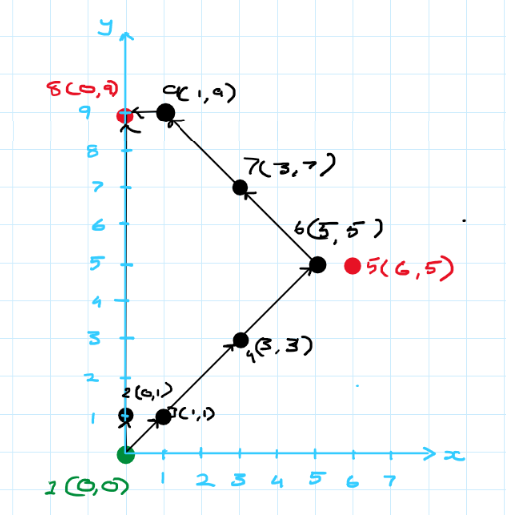 y
8(0,9)
9(1,9)
9
8
7(3,7)
7
6
6(5,5)
5
5(6,5)
4
3
4(3,3)
2
2(0,1)
1
3(1,1)
x
1 2 3 4 5 6 7
1(0,0)